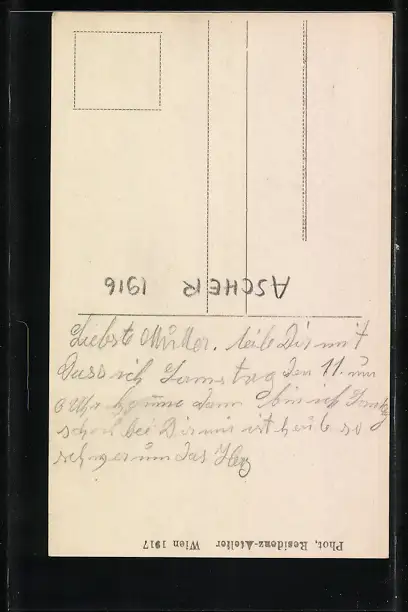 ASCHER 1916
Liebste Mutter. teile Dir mit
Dass ich Samstag den 11. um
6 Uhr komme dann bin ich
schon bei Dir mir ist heute so
schwer um das Herz
Phot, Residenz-Atelier Wien 1917